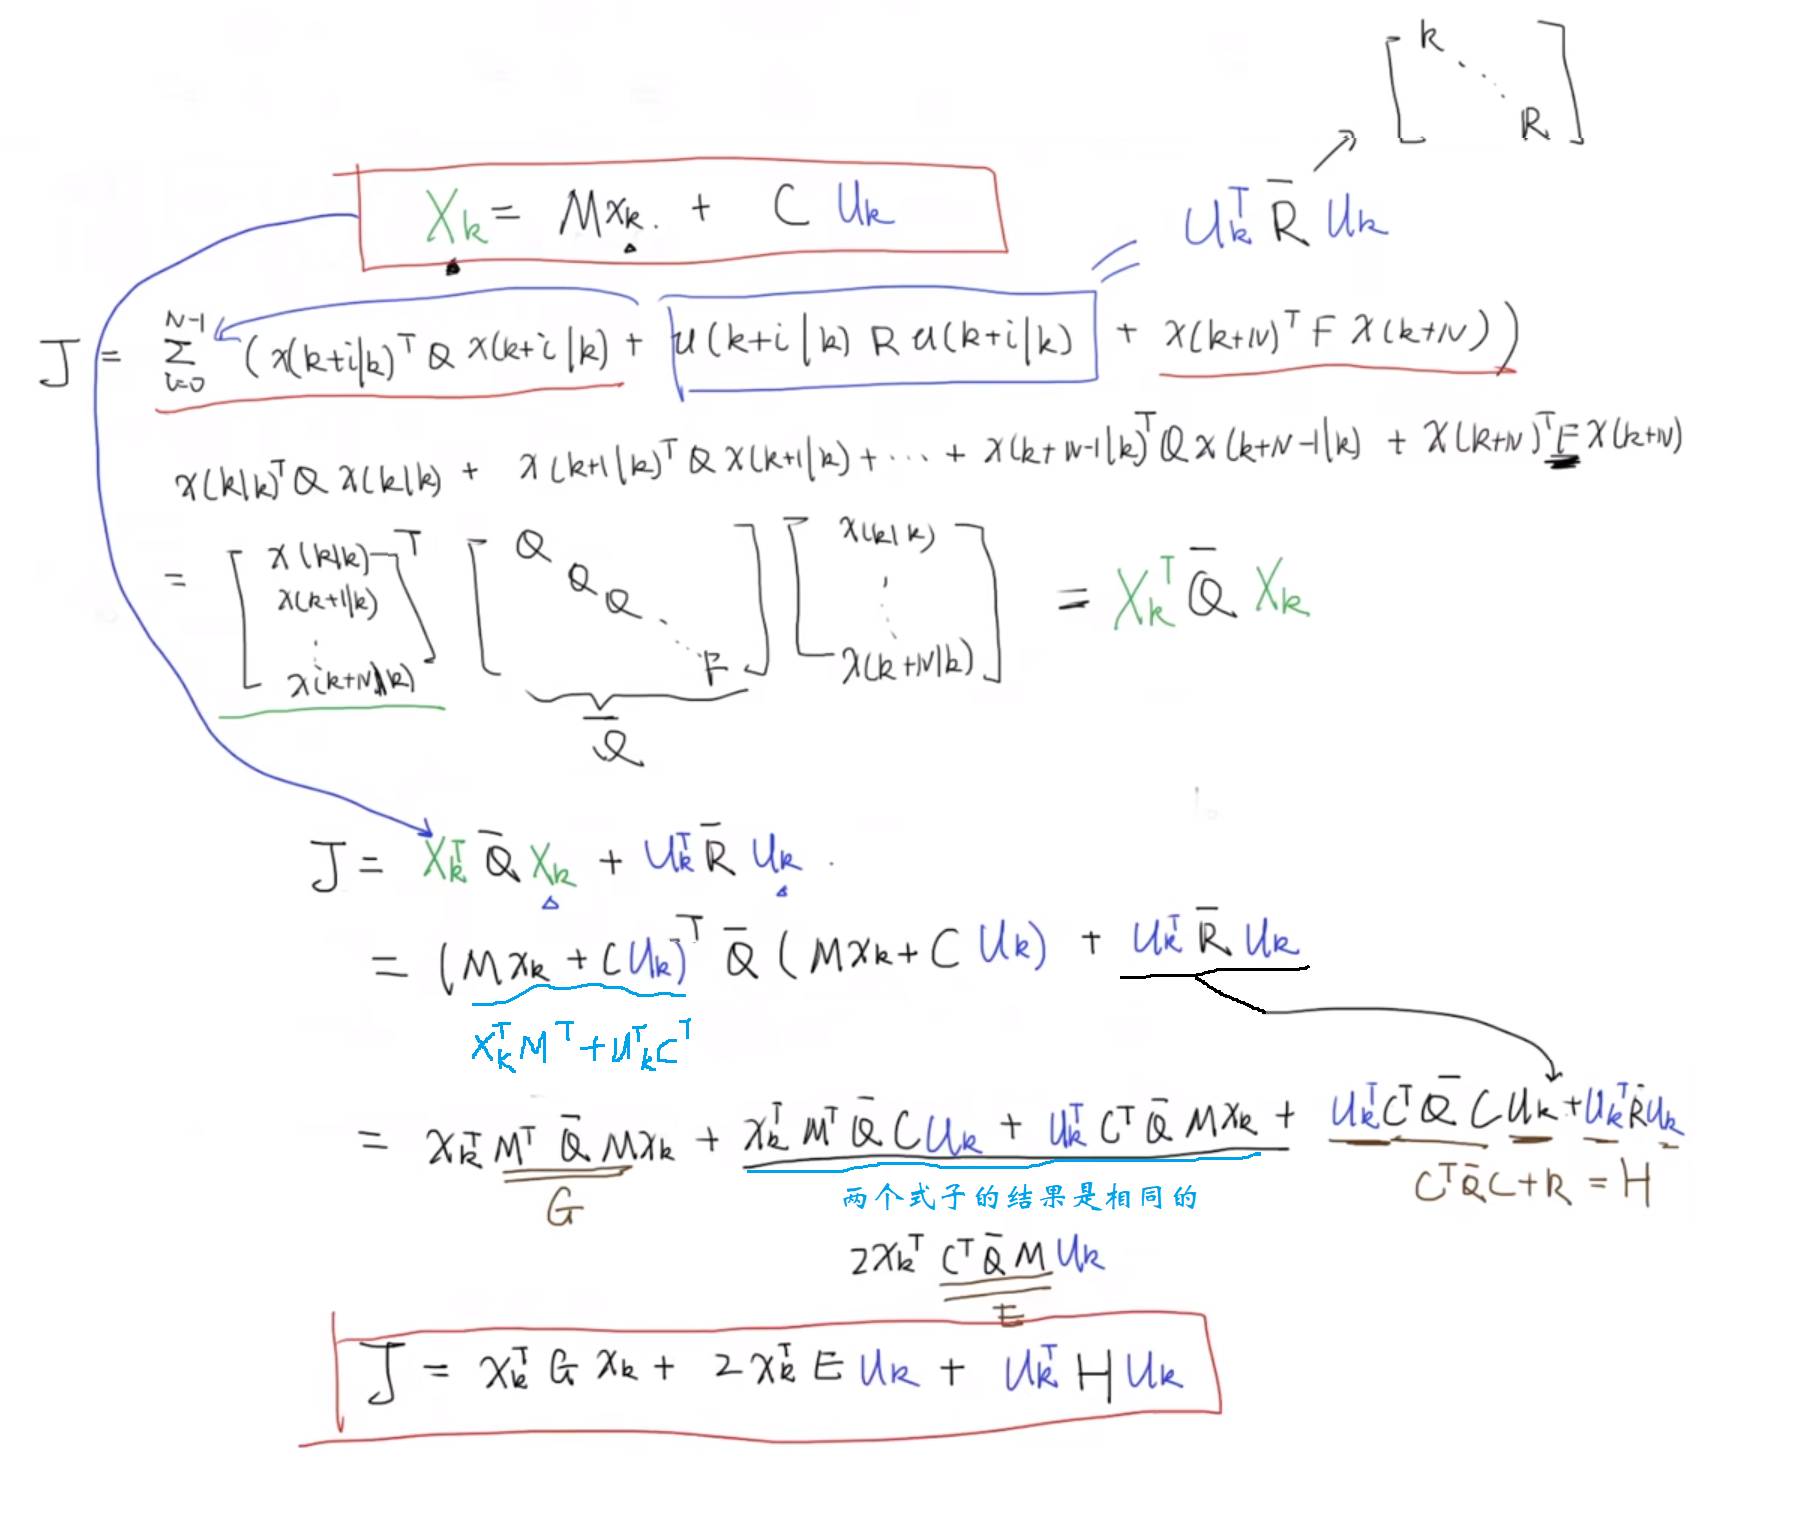 [k ⋱ R]
X_k = M x_k + C U_k
U_k^T R̄ U_k
J = Σ_{i=0}^{N-1} (x(k+i|k)^T Q x(k+i|k) + u(k+i|k) R u(k+i|k) + x(k+N)^T F x(k+N))
x(k|k)^T Q x(k|k) + x(k+1|k)^T Q x(k+1|k) + ⋯ + x(k+N-1|k)^T Q x(k+N-1|k) + x(k+N)^T F x(k+N)
= [x(k|k) x(k+1|k) ⋮ x(k+N|k)]^T [Q Q Q ⋱ F] [x(k|k) ⋮ x(k+N|k)] = X_k^T Q̄ X_k
Q̄
J = X_k^T Q̄ X_k + U_k^T R̄ U_k .
= (M x_k + C U_k)^T Q̄ (M x_k + C U_k) + U_k^T R̄ U_k
x_k^T M^T + U_k^T C^T
= x_k^T M^T Q̄ M x_k + x_k^T M^T Q̄ C U_k + U_k^T C^T Q̄ M x_k + U_k^T C^T Q̄ C U_k + U_k^T R̄ U_k
G
两个式子的结果是相同的
C^T Q̄ C + R = H
2 x_k^T C^T Q̄ M U_k
E
J = x_k^T G x_k + 2 x_k^T E U_k + U_k^T H U_k